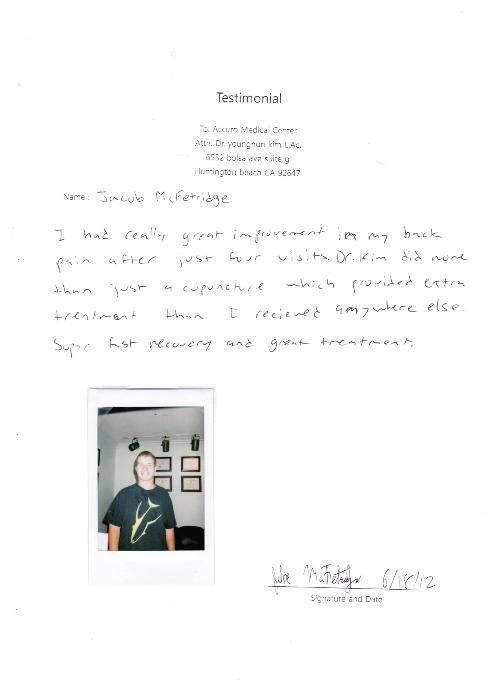 Testimonial
To. Accuro Medical Center
Attn. Dr. younghun kim L.Ac.
6552 bolsa ave suite g
Huntington beach CA 92647
Name: Jacob McFetridge
I had really great improvement in my back
pain after just four visits. Dr. Kim did more
than just acupuncture which provided extra
treatment than I recieved anywhere else.
Super fast recovery and great treatment.
6/18/12
Signature and Date